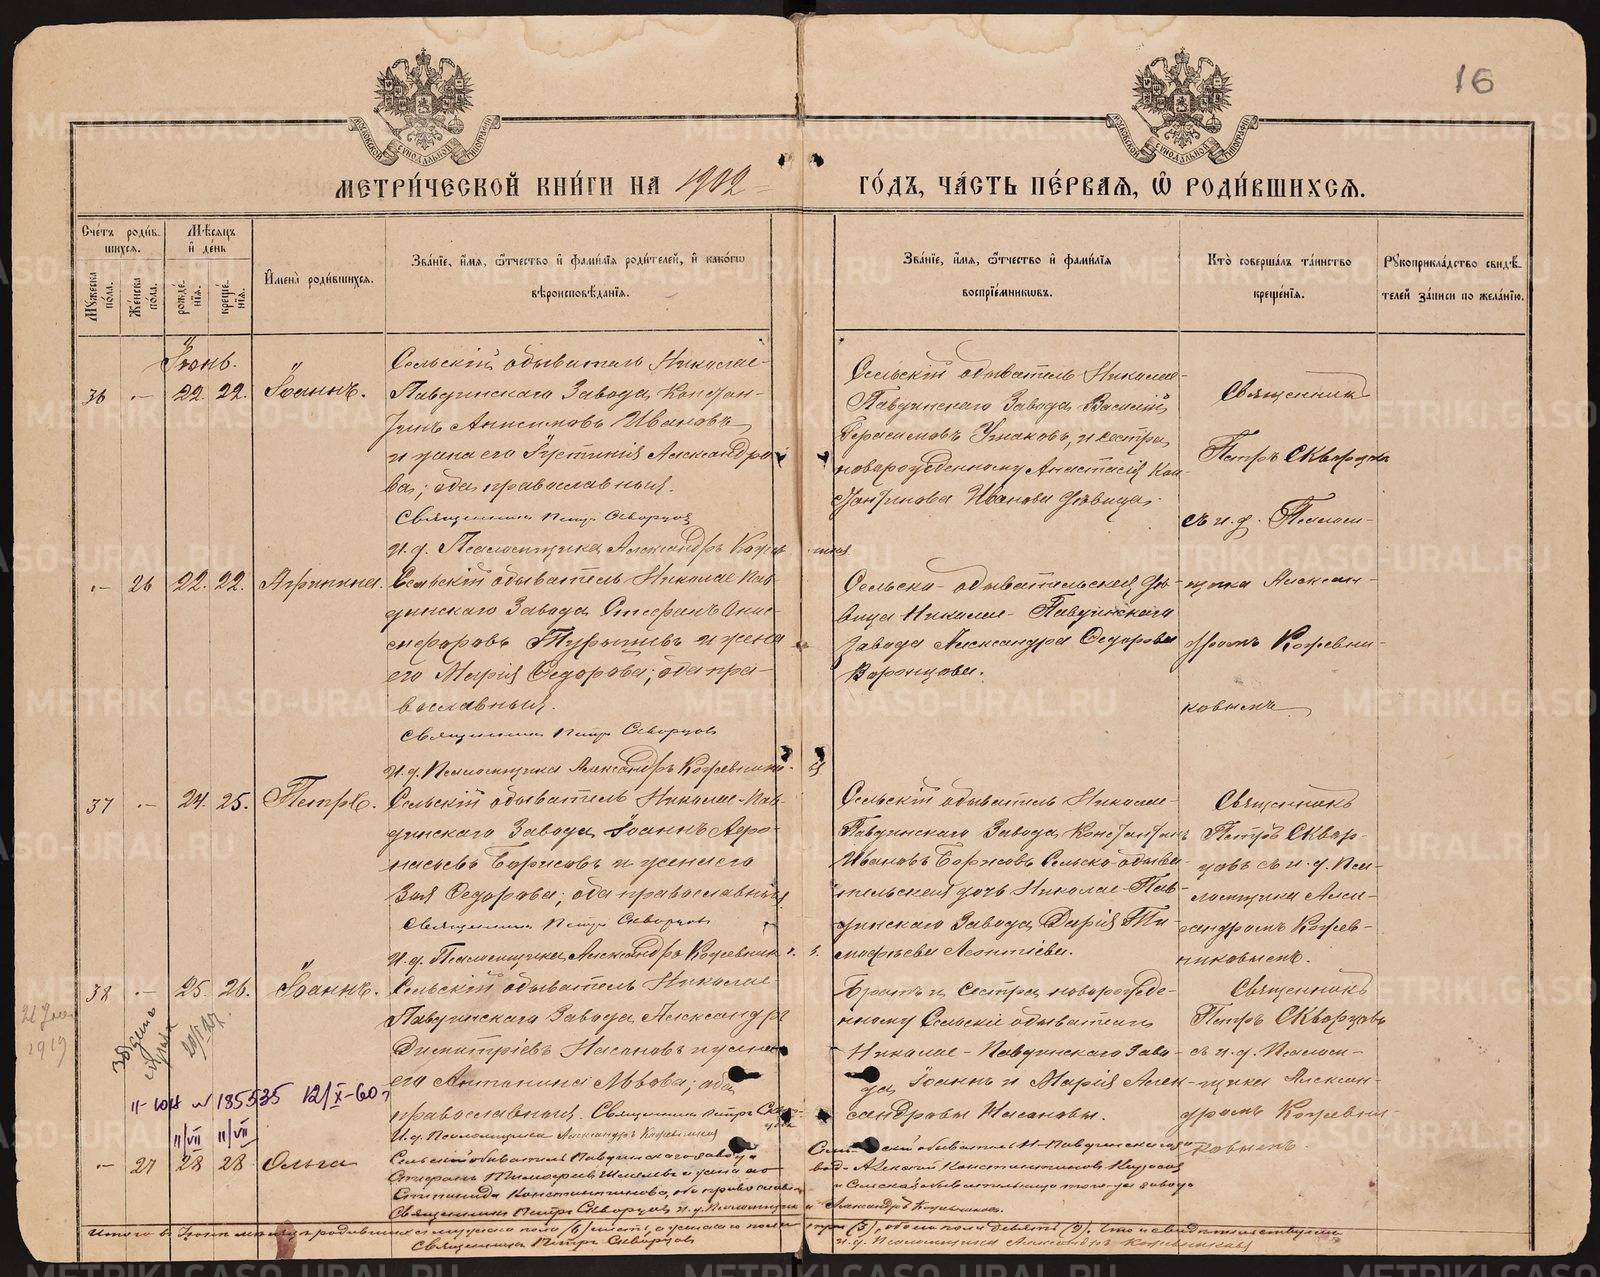 16
МЕТРИЧЕСКОЙ КНИГИ НА 1912 ГОДЪ, ЧАСТЬ ПЕРВАЯ, Ѡ РОДИВШИХСЯ.
Счетъ родив-
шихся.
Мужеска пола.
Женска пола.
Мѣсяцъ и день
рожде-
нія.
креще-
нія.
Имена родившихся.
Званіе, имя, ѿчество и фамилія родителей, и какогѡ
вѣроисповѣданія.
Званіе, имя, ѿчество и фамилія
воспріемниковъ.
Кто совершалъ таинство
крещенія.
Рукоприкладство свидѣ-
телей записи по желанію.
Іюнь.
36 - 22. 22. Іоаннъ.
Сельскій обыватель Николае-
Павдинскаго Завода Констан-
тинъ Анисимовъ Ивановъ
и жена его Іустинія Александро-
ва; оба православныя.
Священникъ Петръ Скворцов
И.д. Псаломщика Александръ Кожев
Сельскій обыватель Николае-
Павдинскаго Завода Василій
Герасимовъ Ушаковъ, и сестра
новорожденному Анастасія Кон-
стантинова Иванова дѣвица.
Священникъ
Петръ Скворцовъ
съ и.д. Псалом-
щика Алексан-
дромъ Кожевни-
ковымъ
- 26 22. 22. Агриппина.
Сельскій обыватель Николае-Пав-
динскаго Завода Стефанъ Они-
сифоровъ и жена
его Марія Ѳедорова; оба пра-
вославныя.
Священникъ Петръ Скворцовъ
И.д. Псаломщика Александръ Кожевнико-
въ
Сельско-обывательская дѣ-
вица Николае-Павдинскаго
Завода Александра Ѳедорова
Воронцова.
37 - 24. 25. Петръ.
Сельскій обыватель Николае-Пав-
динскаго Завода Іоаннъ Аѳо-
насьевъ Борисовъ и жена его
Зоя Ѳедорова; оба православныя
Священникъ Петръ Скворцовъ
И.д. Псаломщика Александръ Кожевник
Сельскій обыватель Николае-
Павдинскаго Завода Константинъ
Ивановъ Борисовъ Сельско-обыва-
тельская дочь Николае-Пав-
динскаго Завода Дарія Ти-
моѳеева Леонтіева.
Священникъ
Петръ Сквор-
цовъ съ и.д. Пса-
ломщика Алек-
сандромъ Кожев-
никовымъ.
38 - 25. 26. Іоаннъ.
Сельскій обыватель Николае-
Павдинскаго Завода Александръ
Димитріевъ и жена
его Антонина Львова; оба
православныя. Священникъ Петръ Сквор-
И.д. Псаломщика Александръ Кожевников
Братъ и Сестра новорожде-
нному Сельскіе обыватели
Николае-Павдинскаго Заво-
да, Іоаннъ и Марія Алек-
сандровы
Священникъ
Петръ Скворцовъ
съ и.д. Псалом-
щика Алексан-
дромъ Кожевни-
ковымъ.
1919
II-ЮЯ № 185535 12/X-60г
11/VII 11/VII
- 27 28 28 Ольга
Сельскій обыватель Павдинскаго завода
Стефанъ Тимофеевъ и жена его
Степанида Константинова, оба православн
Священникъ Петръ Скворцовъ и.д. Псаломщика
Сельскій обыватель Н-Павдинскаго за-
вода Алексій Константиновъ
и Сельская обывательница того-же завода
Александръ Кожевниковъ.
Итого въ Іюнѣ мѣсяцѣ родившихся мужеска пола (6) шесть, а женскаго пола три (3), обоего пола девять (9). Что и свидѣтельствуемъ
Священникъ Петръ Скворцовъ
И.д. Псаломщика Александръ Кожевниковъ
METRIKI.GASO-URAL.RU